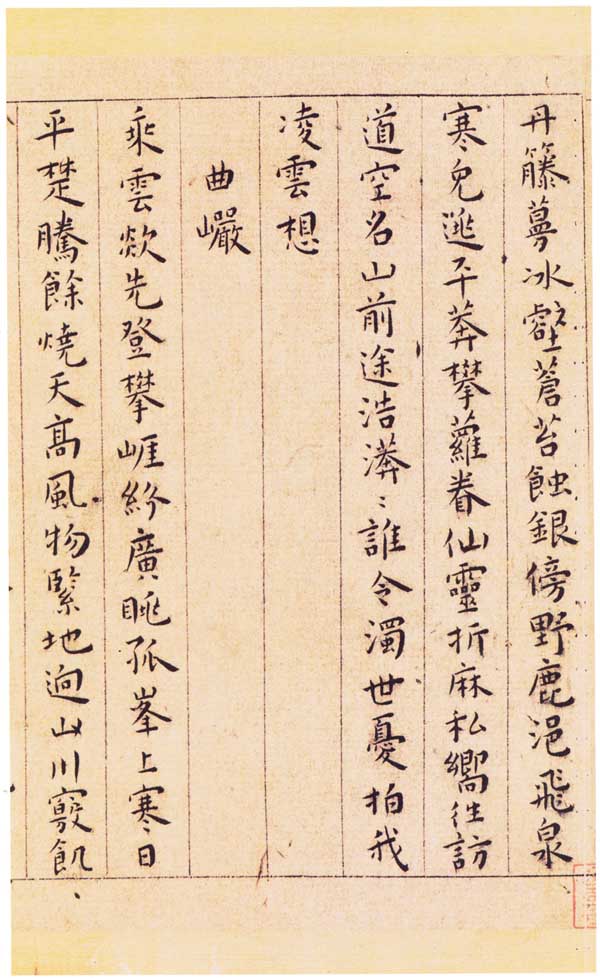 丹籐蔓冰壑蒼苔蝕銀傍野鹿浥飛泉
寒兔遯平莽攀蘿眷仙靈折麻私嚮往訪
道空名山前途浩漭〻誰令濁世憂拍我
凌雲想
曲巖
乘雲欻先登攀崕紛廣眺孤峯上寒日
平楚騰餘燒天高風物緊地迥山川竅飢